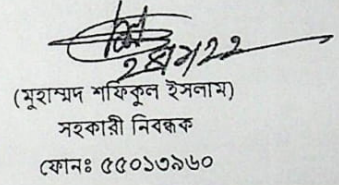 (মুহাম্মদ শফিকুল ইসলাম)
সহকারী নিবন্ধক
ফোনঃ ৫৫০১৩৯৬০